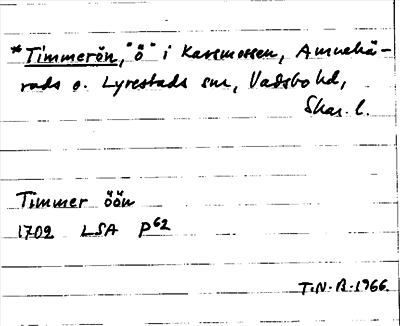 *Timmerön, "ö" i Kassmossen, Amnehä-
rads o. Lyrestads snr, Vadsbo hd,
Skar. l.
Timmer öön
1702 LSA P62
T.N.B. 1966.